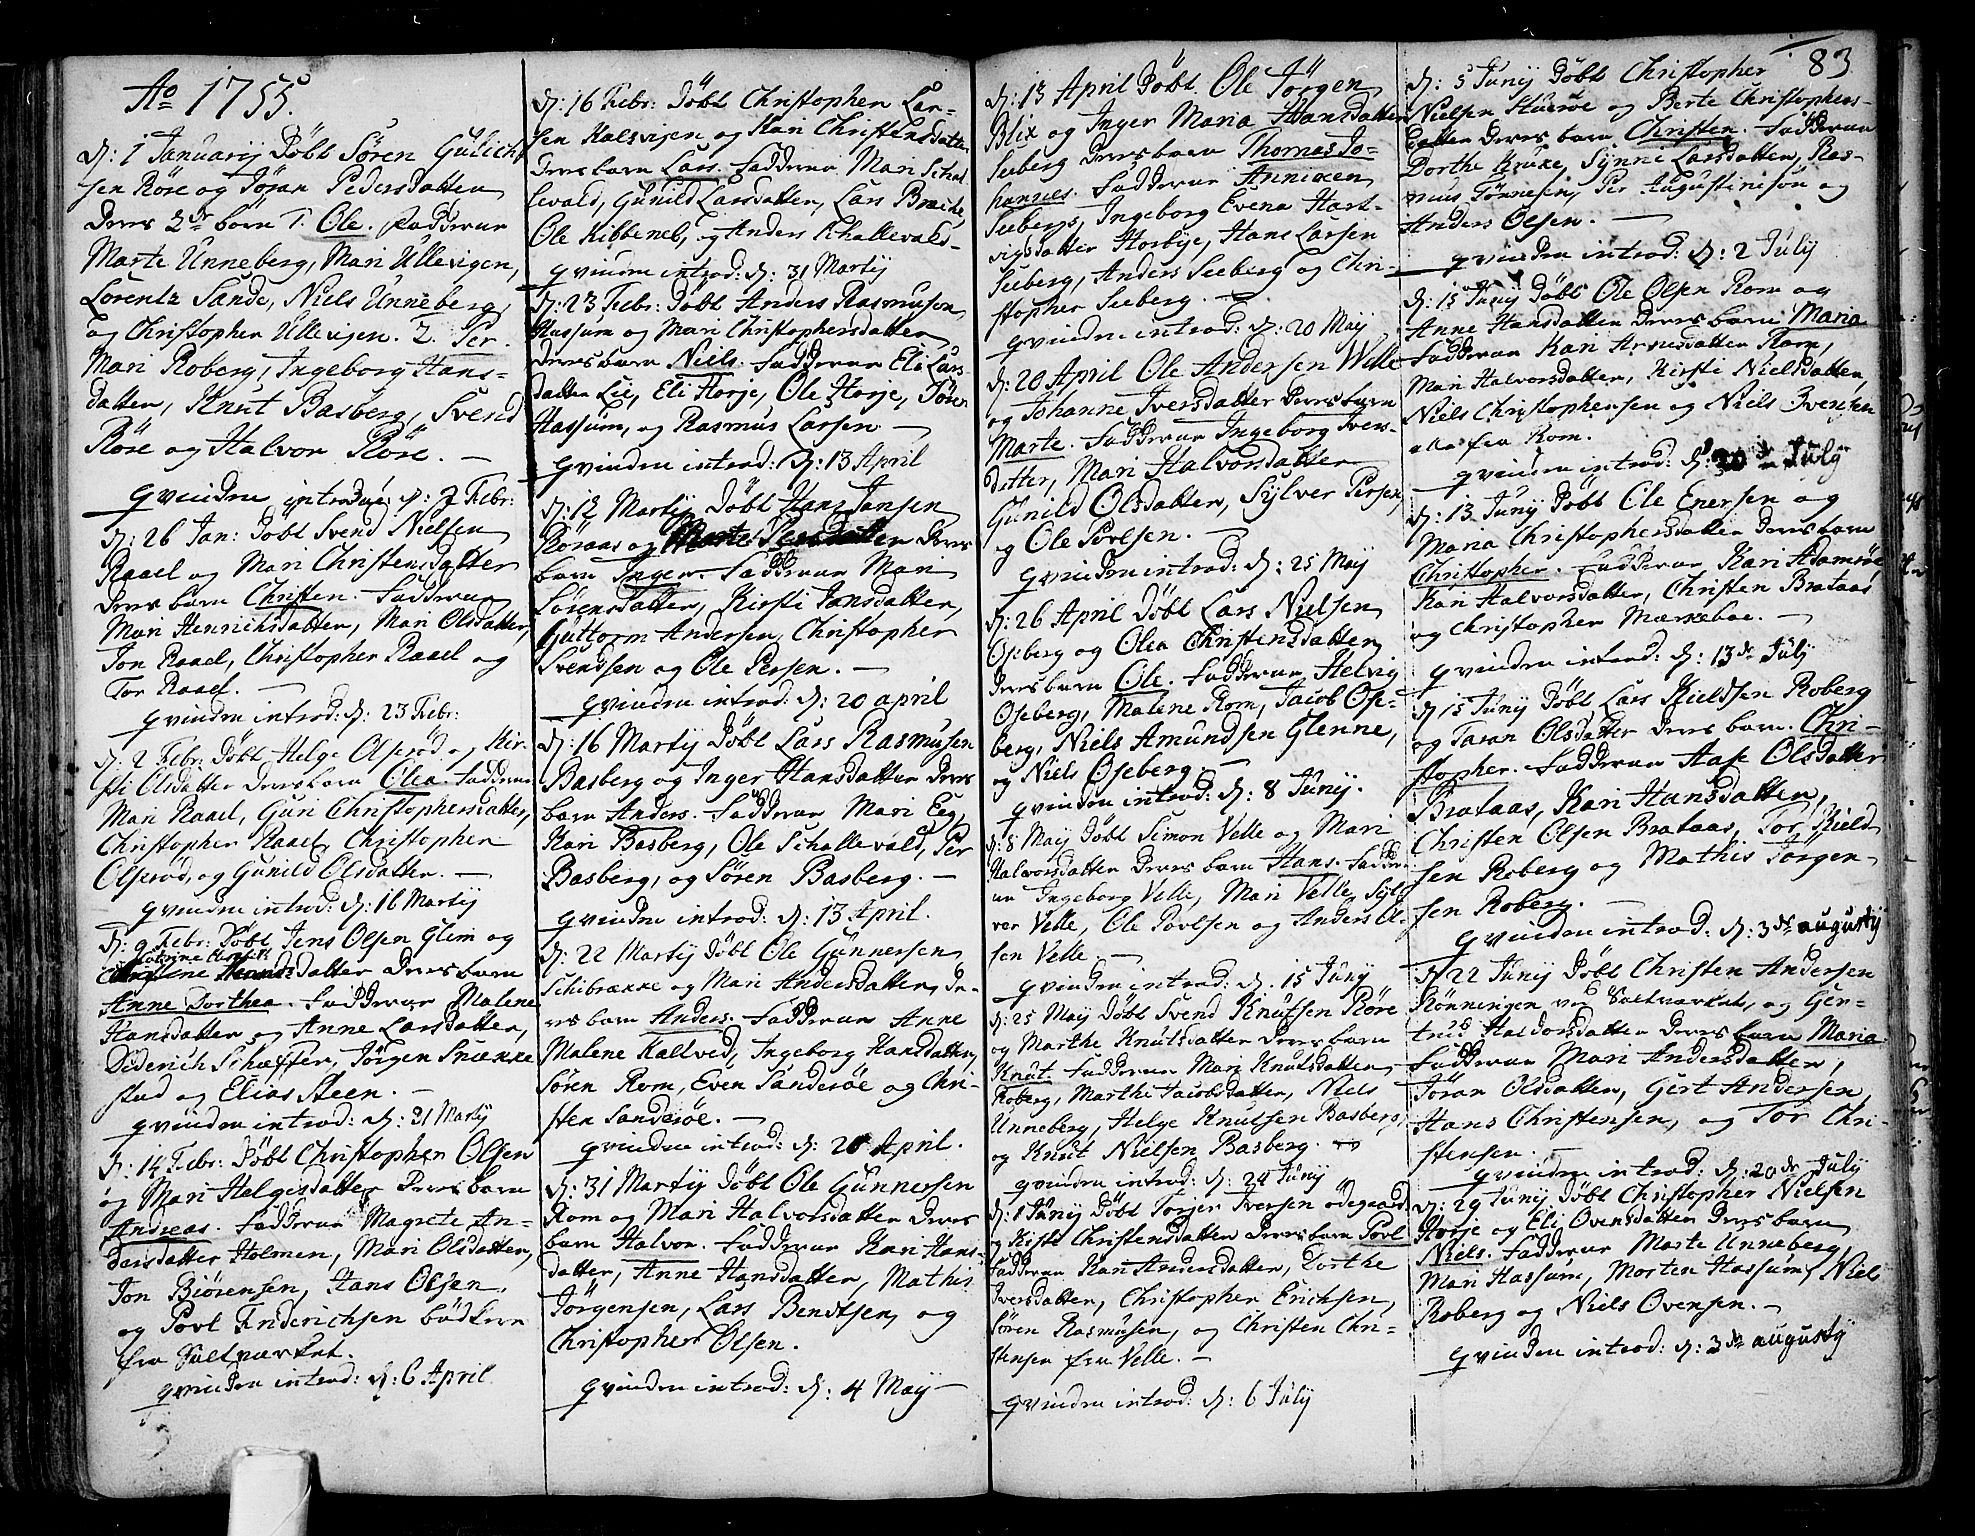 Ao 1755.
d: 1 Januarij Døbt Søren Gulich-
sen Røre og Jøran Pedersdatter
deres 2de børn 1. Ole. Fadderne
Marte Unneberg, Mari Ullevigen,
Lorentz Sande, Niels Unneberg,
og Christopher Ullevigen. 2. Per.
Mari Roberg, Ingeborg Hans-
datter, Knut Basberg, Svend
Røre og Halvor Røre. —
qvinden introd: d: 2 Febr:
d: 26 Jan: Døbt Svend Nielsen
Raael og Mari Christensdatter
deres barn Christen. Fadderne
Mari Henrichsdatter, Mari Olsdatter,
Jon Raael, Christopher Raael og
Tor Raael. —
qvinden introd: d: 23 Febr:
d: 2 Febr: Døbt Helge Olsrød og Kir-
sti Olsdatter deres barn Olea. Fadderne
Mari Raael, Guri Christophersdatter,
Christopher Raael, Christopher
Olsrød, og Gunild Olsdatter. —
qvinden introd: d: 16 Martij
d: 9 Febr: Døbt Jens Olsen Glim og
datter deres barn
Anne Dorthea. Fadderne Malene
Hansdatter og Anne Larsdatter,
Diderich Schaffer, Jørgen Snække-
stad og Elias Steen. —
qvinden introd: d: 31 Martij
d: 14 Febr: Døbt Christopher Olsen
og Mari Helgesdatter deres barn
Andreas. Fadderne Magrete An-
dersdatter Holmen, Mari Olsdatter,
Jon Biørensen, Hans Olsen,
og Povl Friderichsen bødker
fra Saltværket.
qvinden introd: d: 6 April
d: 16 Febr: Døbt Christopher Lar-
sen Kalsvigen og Kari Christensdatter
deres barn Lars. Fadderne Mari Schal-
levald, Gunild Larsdatter, Lars Brække
Ole Kibbenel, og Anders Schallevald-
qvinden introd: d: 31 Martij
d: 23 Febr: Døbt Anders Rasmusen
Hassum og Mari Christophersdatter
deres barn Niels. Fadderne Eli Lars-
datter Lie, Eli Horje, Ole Horje, Tören
Hassum, og Rasmus Larsen —
qvinden introd: d: 13 April
d: 12 Martij Døbt Hans Jansen
Røraas og Marte datter deres
barn Inger. Fadderne Mari
Sørensdatter, Kirsti Jansdatter,
Guttorm Andersen, Christopher
Svendsen og Ole Persen. —
qvinden introd: d: 20 april
d: 16 Martij Døbt Lars Rasmusen
Basberg og Inger Hansdatter deres
barn Anders. Fadderne Mari Eeg,
Kari Basberg, Ole Schallevald, Per
Basberg, og Søren Basberg. —
qvinden introd: d: 13 April.
d: 22 Martij Døbt Ole Gunnersen
Schibrække og Mari Andersdatter, de-
res barn Anders. Fadderne Anne
Malene Kaltved, Ingeborg Hansdatter,
Søren Rom, Even Sanderøe og Chri-
sten Sanderøe. —
qvinden introd: d: 20 April.
d: 31 Martij Døbt Ole Gunnersen
Rom og Mari Halvorsdatter deres
barn Halvor. Fadderne Kari Hans-
datter, Anne Hansdatter, Mathis
Jørgensen, Lars Bendtsen, og
Christopher Olsen.
qvinden introd: d: 4 Maij —
d: 13 April Døbt Ole Jörgen
Blix og Inger Maria Hansdatter
Seeberg deres barn Thomas Jo-
hannes. Fadderne Anniken
Seebergs, Ingeborg Evena Hart-
vigsdatter Horbye, Hans Larsen
Seeberg, Anders Seeberg og Chri-
stopher Seeberg. —
qvinden introd: d: 20 Maij
d: 20 April Ole Andersen Welle
og Johanne Iversdatter deres barn
Marte. Fadderne Ingeborg Ivers-
datter, Mari Halvorsdatter
Gunild Olsdatter, Sylver Persen,
og Ole Povlsen. —
qvinden introd: d: 25 Maij
d: 26 April Døbt Lars Nielsen
Oseberg og Olea Christensdatter
deres barn Ole. Fadderne Helvig
Oseberg, Malene Rom, Jacob Ose-
berg, Niels Amundsen Glenne,
og Niels Oseberg. —
qvinden introd: d: 8 Junij.
d: 8 Maij Døbt Simon Velle og Mari
Halvorsdatter deres barn Hans. Fadder-
ne Ingeborg Velle, Mari Velle, Syl-
ver Velle, Ole Povlsen og Anders Ol-
sen Velle —
qvinden introd: d. 15 Junij
d: 25 Maij Døbt Svend Knutsen Røre
og Marthe Knutsdatter deres barn
Knut. Fadderne Mari Knutsdatter
Roberg, Marthe Jacobsdatter, Niels
Unneberg, Helge Knutsen Basberg,
og Knut Nielsen Basberg.
qvinden introd: d: 24 Junij
d: 1 Junij Døbt Torjer Iversen ødegaard
og Kisti Christensdatter deres barn Povl
Fadderne Kari Andersdatter, Dorthe
Iversdatter, Christopher Erichsen,
Søren Rasmusen, og Christen Chri-
stensen fra Velle. —
qvinden introd: d: 6 Julij
83
d: 5 Junij Døbt Christopher
Nielsen Stuerøe og Berte Christophers-
datter deres barn Christen. Fadderne
Dorthe Krukе, Synni Larsdatter, Ras-
mus Tønnesen, Per Augustinisøn og
Anders Olsen. —
qvinden introd: d: 2 Julij
d: 15 Junij Døbt Ole Olsen Rom og
Anne Hansdatter deres barn Maria
Fadderne Kari Arnesdatter Rom,
Mari Halvorsdatter, Kirsti Nielsdatter,
Niels Christophersen og Niels Evensen
alle fra Rom.
qvinden introd: d: Julij
d: 13 Junij Døbt Ole Enersen og
Maria Christophersdatter deres barn
Christopher. Fadderne Kari Adamsrøe
Kari Halvorsdatter, Christen Brataas
og Christopher Mærkeboe. —
qvinden introd: d: 13de Julij
d: 15 Junij Døbt Lars Kieldsen Roberg
og Taran Olsdatter deres barn Chri-
stopher. Fadderne Aase Olsdatter
Brataas, Kari Hansdatter,
Christen Olsen Brataas, Tor Kield-
sen Roberg og Mathis Jörgen-
sen Roberg. —
qvinden introd: d: 3de augustij
d: 22 Junij Døbt Christen Andersen
Rønningen ved Saltværket, og Ger-
trud Haldorsdatter deres barn Maria.
Fadderne Mari Andersdatter,
Jøran Olsdatter, Gert Andersen,
Hans Christensen, og Tor Chri-
stensen. —
qvinden introd: d: 20de Julij
d: 29 Junij Døbt Christopher Nielsen
Horje og Eli Ovensdatter deres barn
Niels. Fadderne Marte Unneberg,
Mari Hassum, Morten Hassum, Niel
Roberg og Niels Ovensen. —
qvinden introd: d: 3de augustij